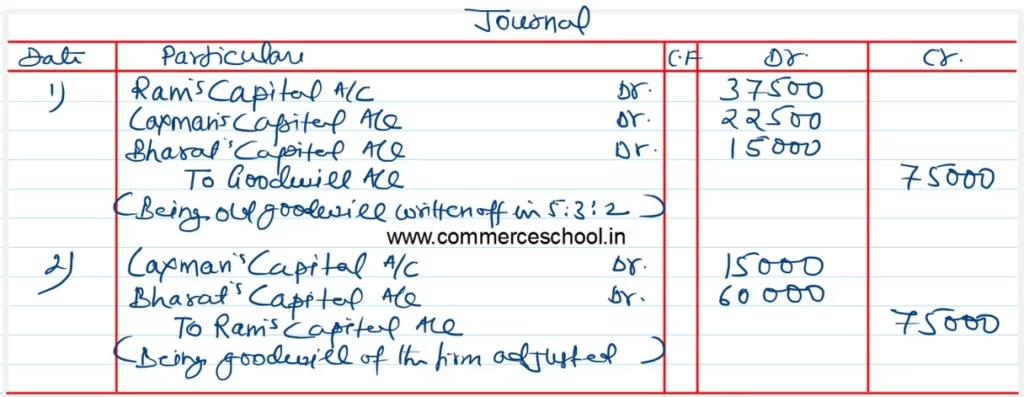 Journal
Date Particulars C.F Dr. Cr.
1) Ram's Capital A/c Dr. 37500
Laxman's Capital A/c Dr. 22500
Bharat's Capital A/c Dr. 15000
To Goodwill A/c 75000
(Being old goodwill written off in 5:3:2)
www.commerceschool.in
2) Laxman's Capital A/c Dr. 15000
Bharat's Capital A/c Dr. 60000
To Ram's Capital A/c 75000
(Being goodwill of the firm adjusted)